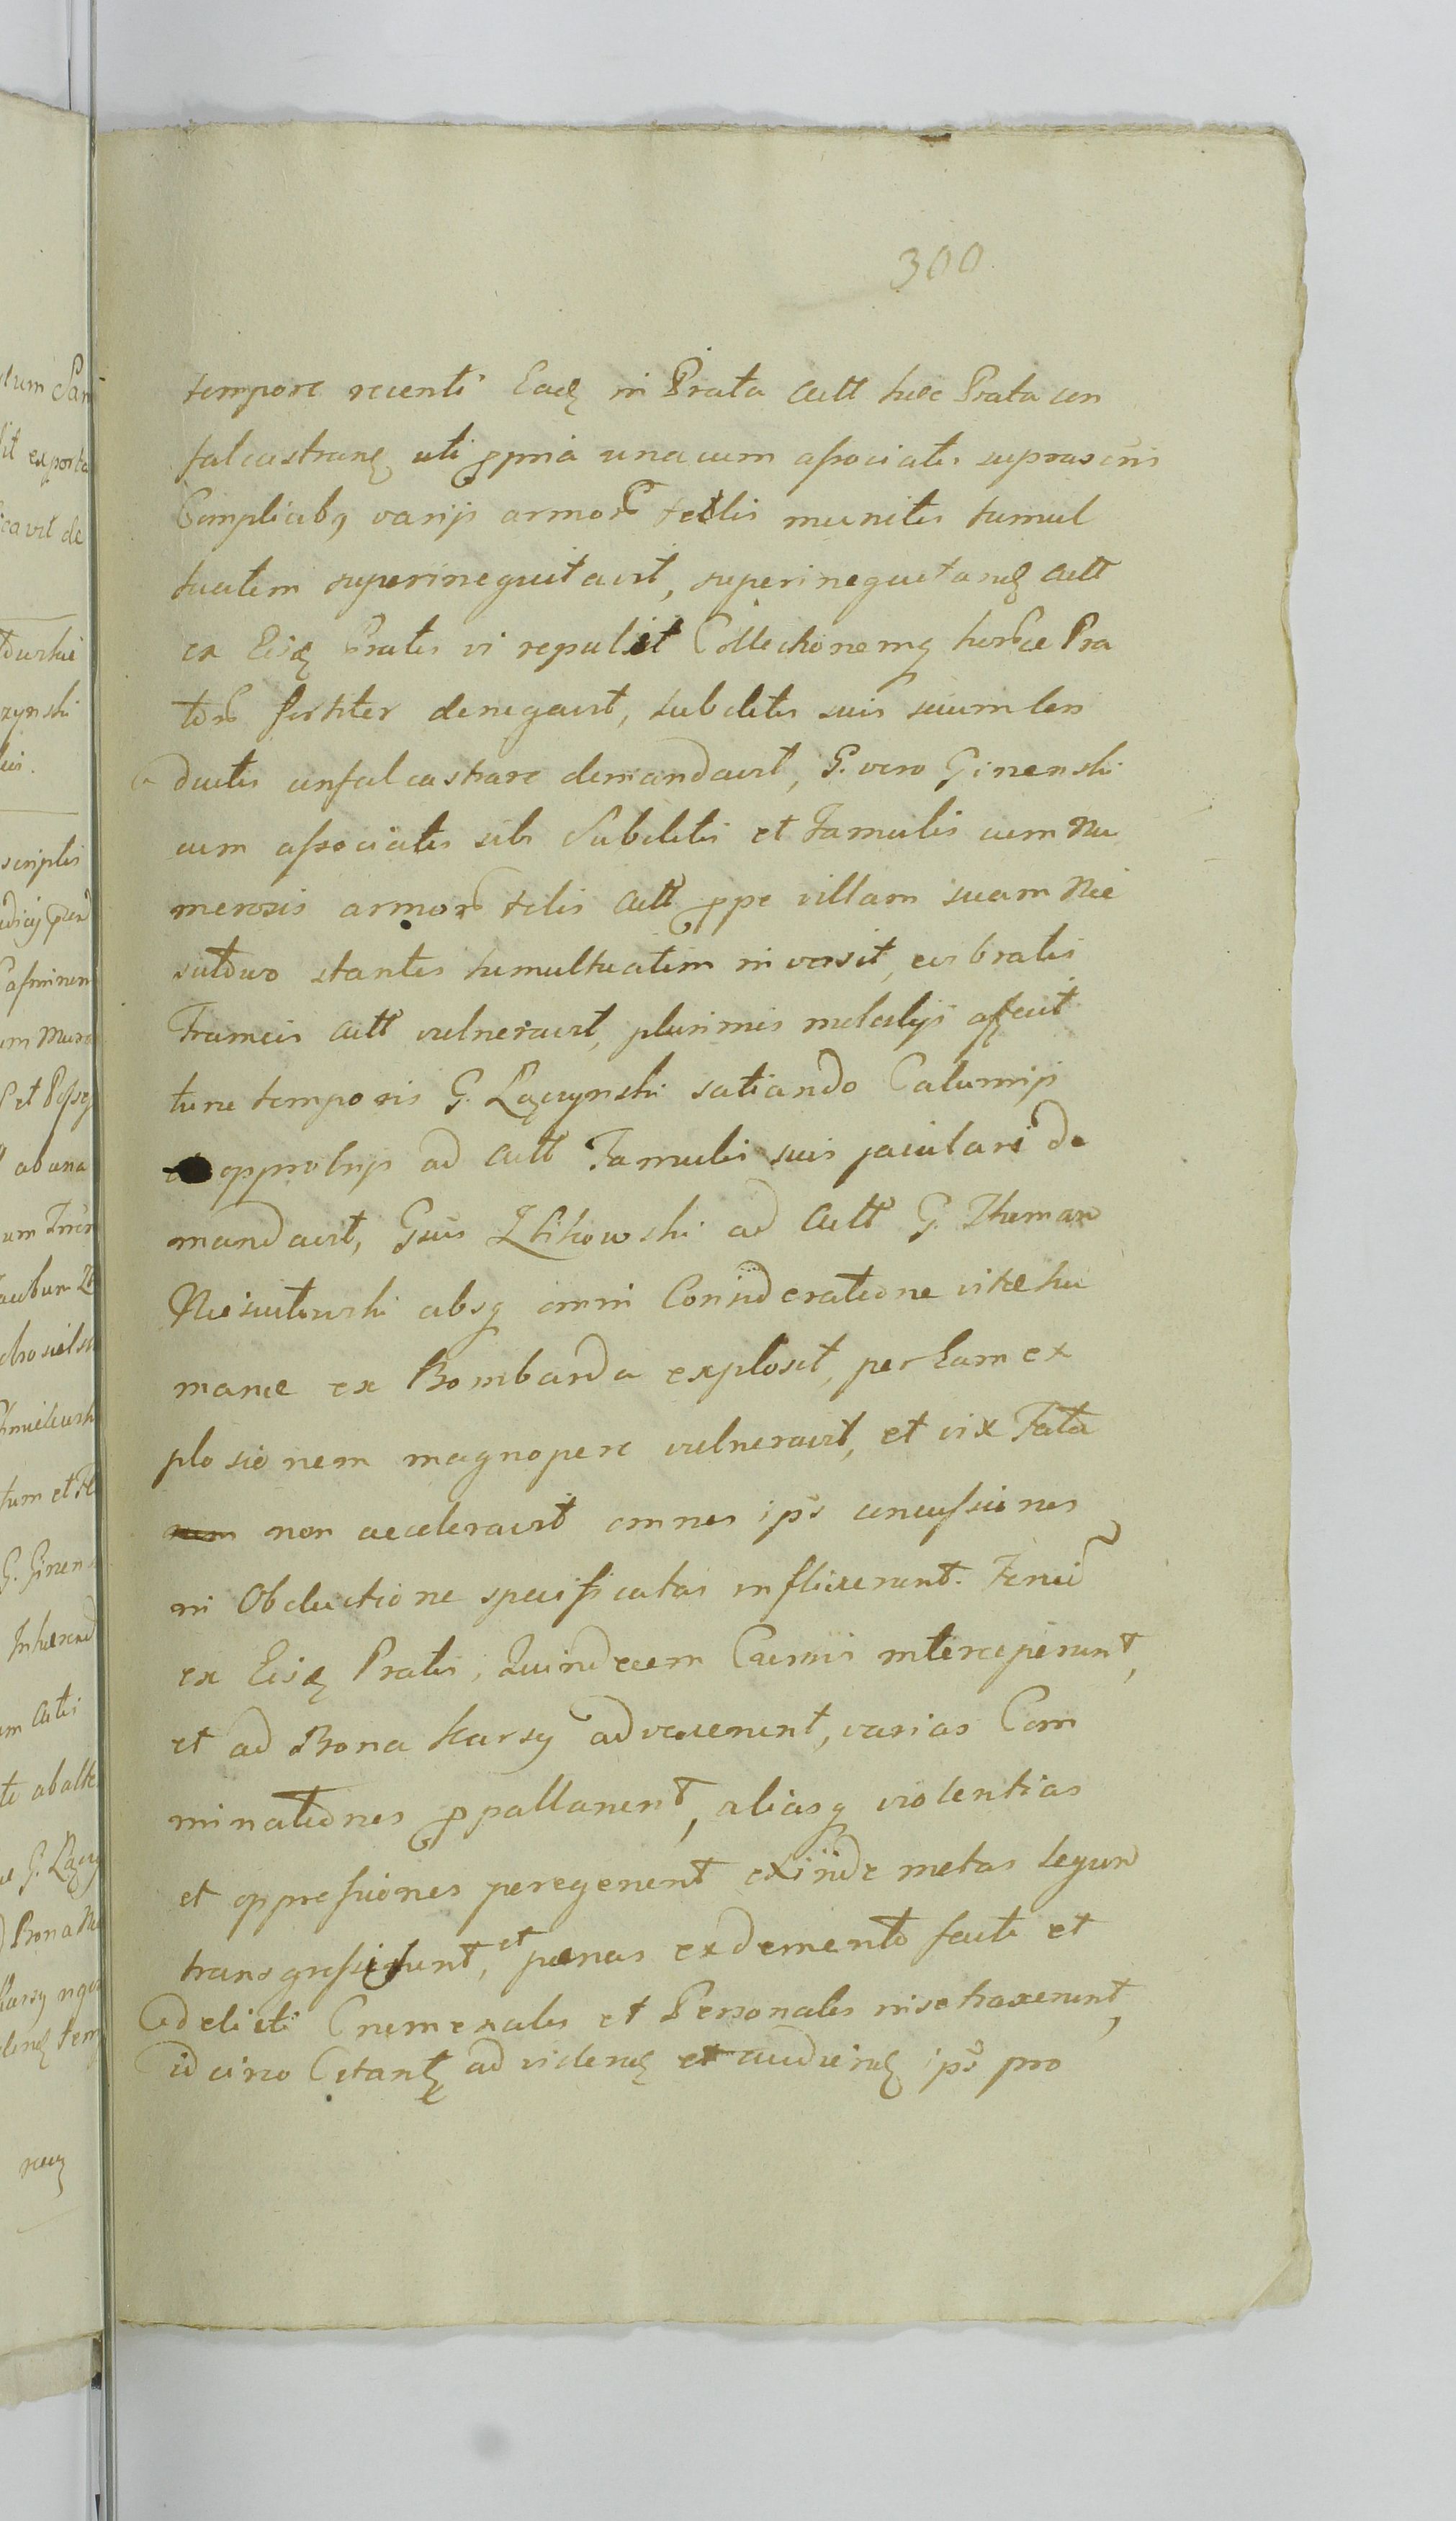 300
tempore recenti Ead in Prata Actt haec Prata con
falcastrand uti ppria unacum associatis suprascris
Complicibq varijs armor telis munitis tumul
tuatim superinequitavit, superinequitand Actt
ex Eisd Pratis vi repulsit Collectionemq herbae Pra
tor fortiter denegavit, subditis suis secum
ductis confalcastrare demandavit, G. vero Ginenski
cum associatis sibi Subditis et Famulis cum Nu
merosis armor telis Actt ppe villam suam Nie
stantes tumultuatim invasit, eos
Frameis Actt vulneravit, plurimis affecit
tunc temporis G. Łączynski satiando Calumnijs
opprobrijs ad Actt Famulis suis jaculari de
mandavit, Gsus Zbikowski ad Actt G.
absq omni Consideratione vitae hu
manae ex Bombarda explosit, per Eam ex
plosionem magnopere vulneravit, et vix Fata
non acceleravit omnes ips concussiones
in Obductione specificatas inflixerunt.
ex Eisd Pratis, Quindecem interceperunt,
et ad Bona Karsy advexerunt, varias Com
minationes ppallarunt, aliasq violentias
et oppressiones peregerunt exinde metas legum
transgressi sunt, et paenas ex demerito facti et
delicti Criminales et Personales in se traxerunt,
idcirco Citant ad vidend et audiend ips pro